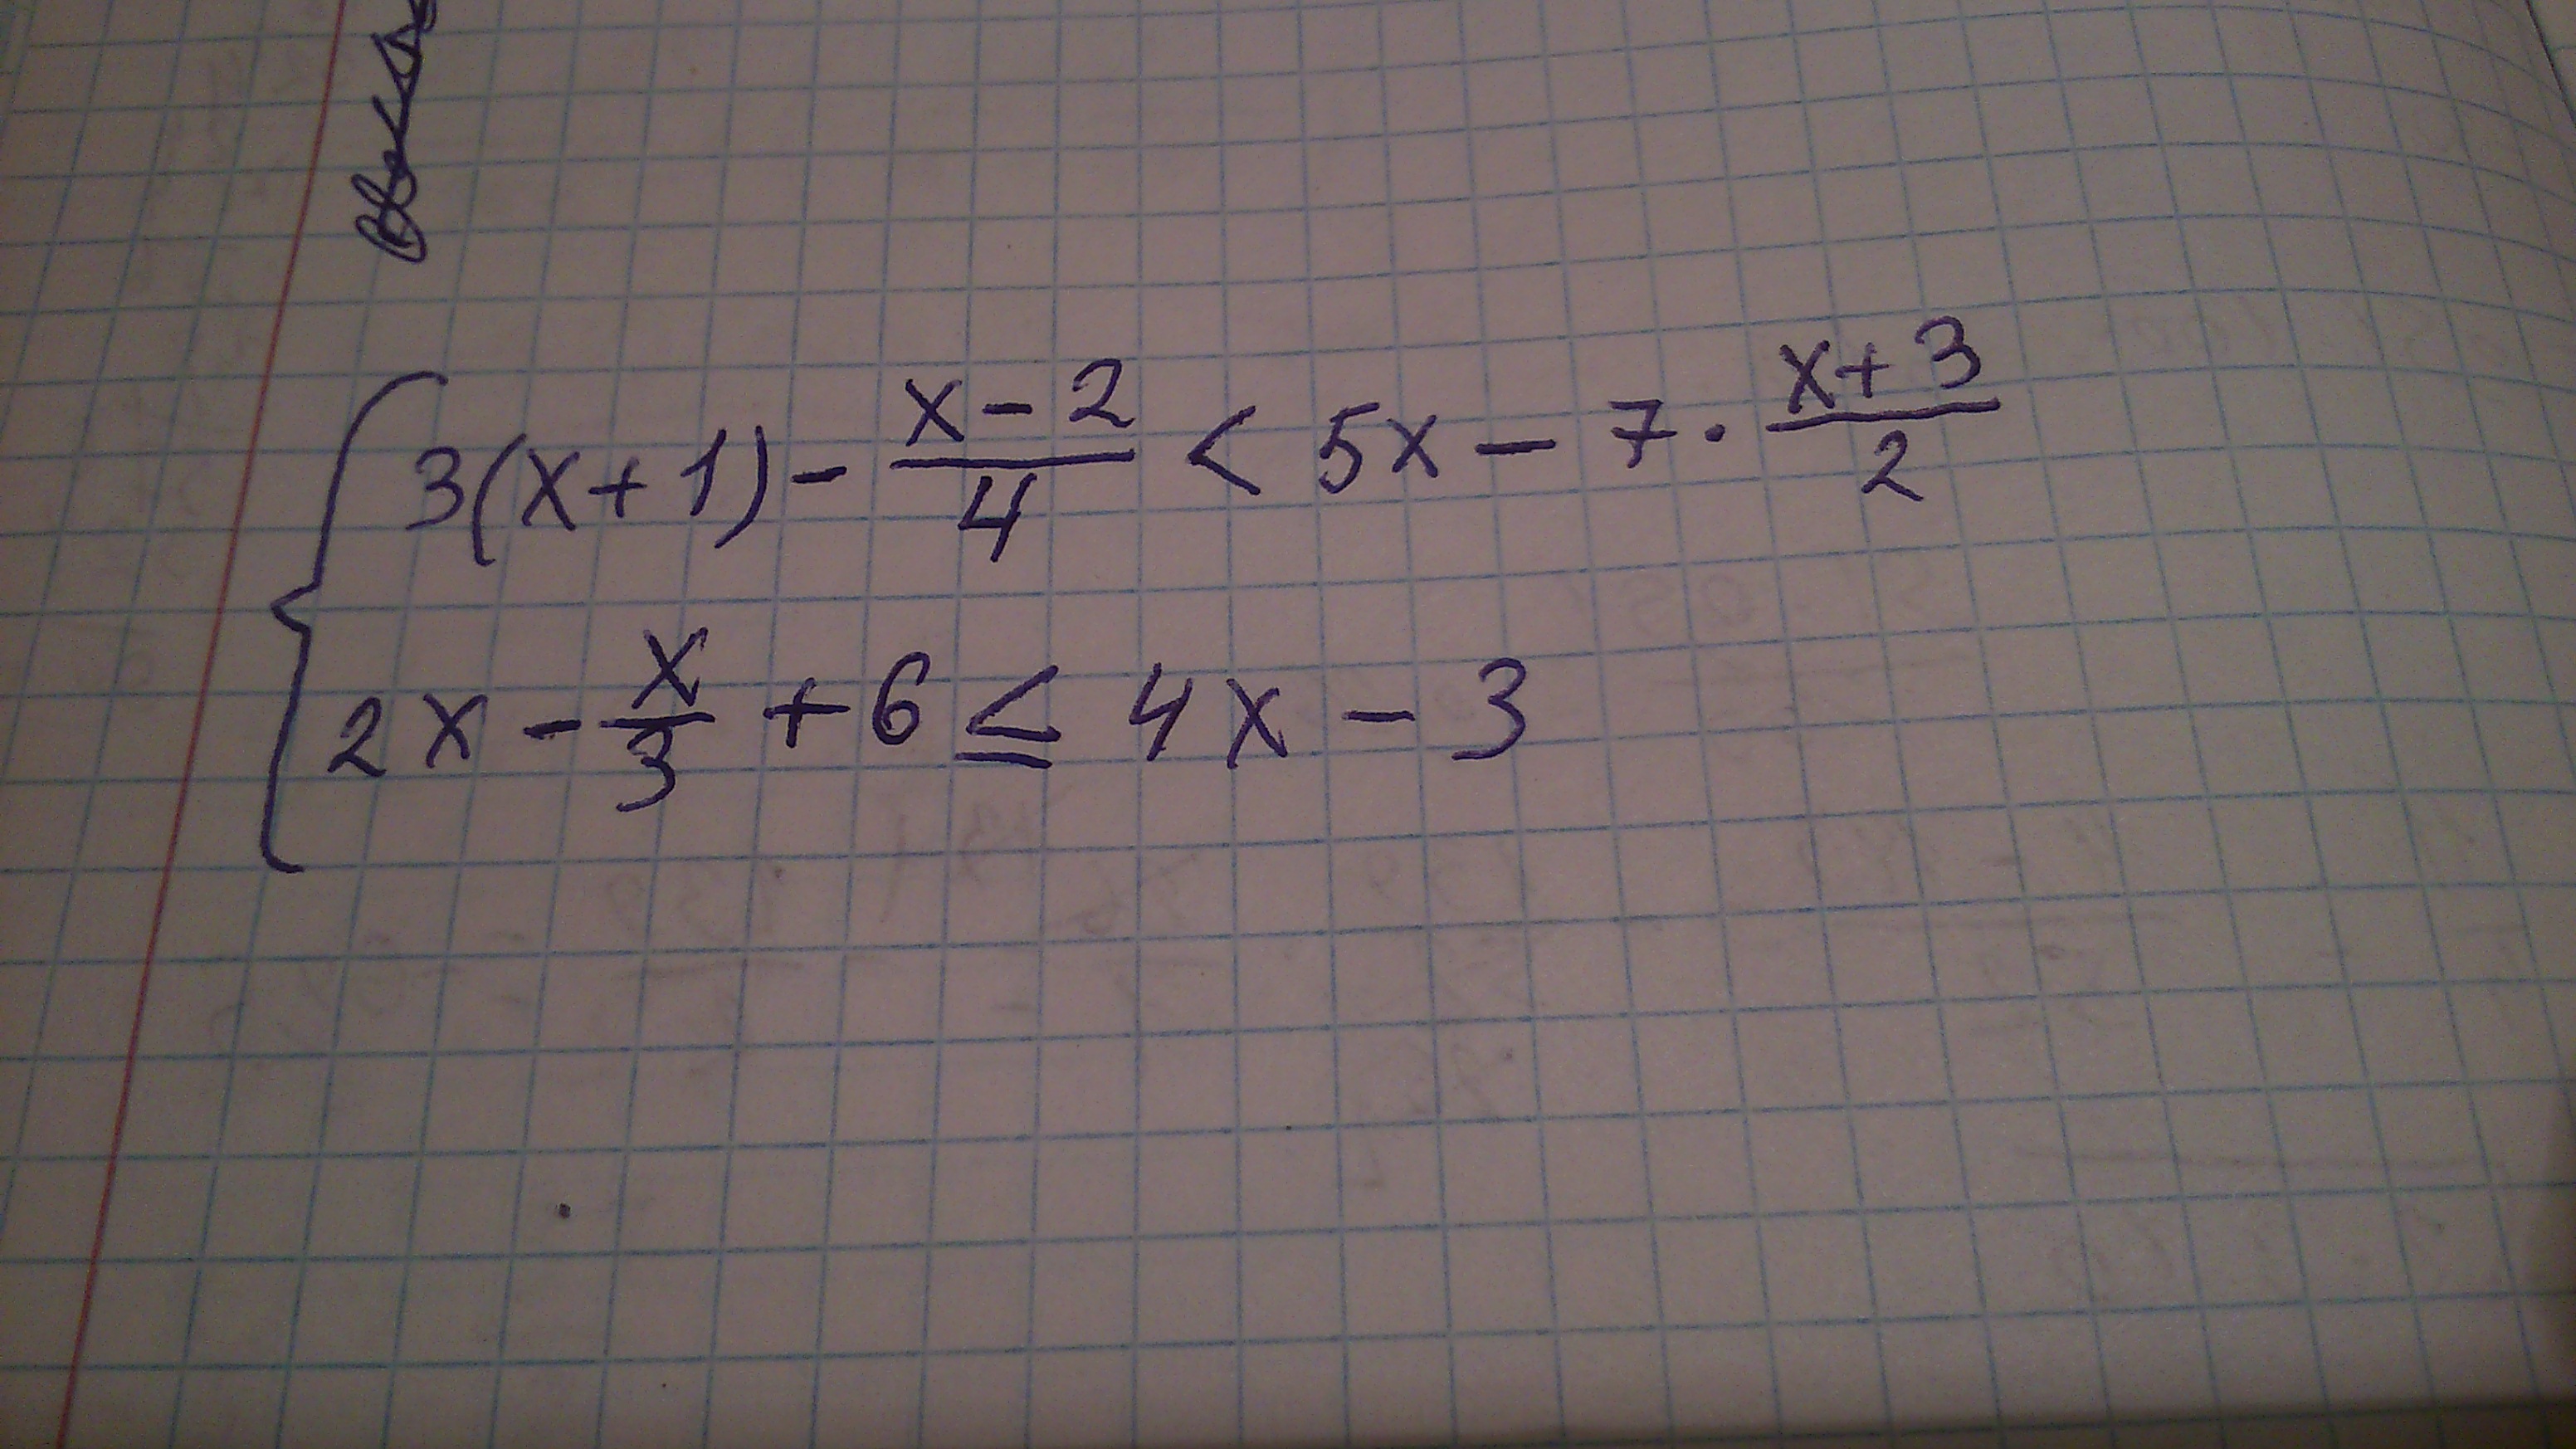 3(x+1) - \frac{x-2}{4} < 5x - 7 · \frac{x+3}{2}
2x - \frac{x}{3} + 6 ≤ 4x - 3